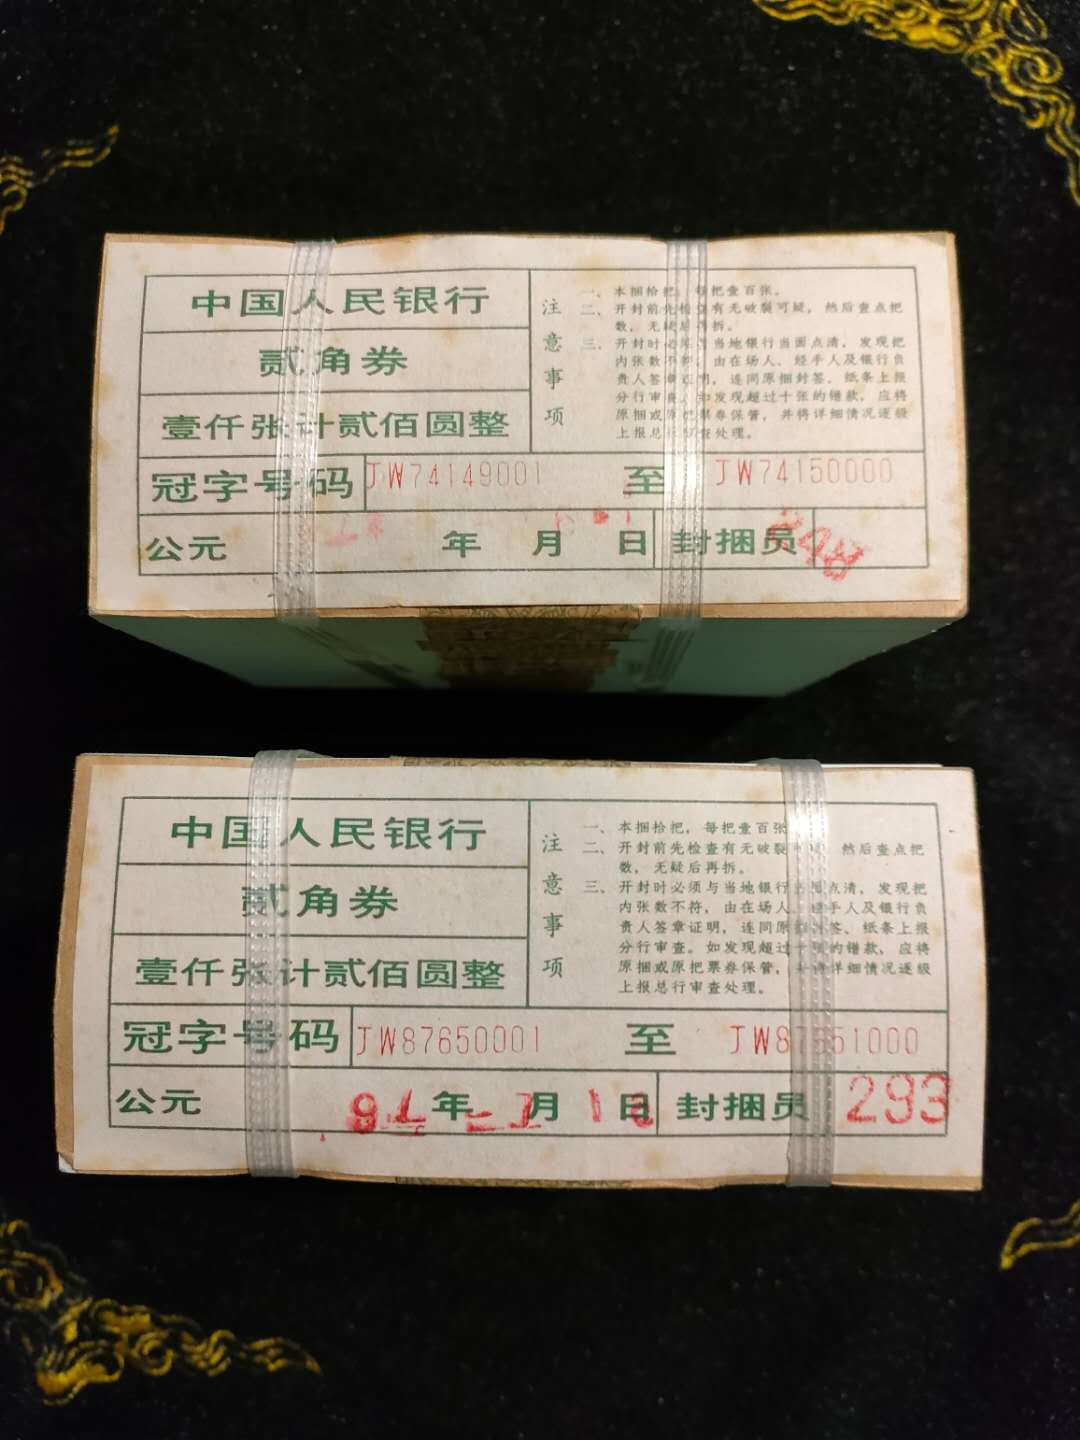 中国人民银行
贰角券
壹仟张计贰佰圆整
注意事项
一、本捆拾把，每把壹百张。
二、开封前先检查有无破裂可疑，然后查点把
数，无疑后再拆。
三、开封时必须与当地银行当面点清，发现把
内张数不符，由在场人、经手人及银行负
责人签章证明，连同原捆封签、纸条上报
分行审查。如发现超过十张的错款，应将
原捆或原把票券保管，并将详细情况逐级
上报总行审查处理。
冠字号码 JW74149001 至 JW74150000
公元 年 月 日 封捆员 348
中国人民银行
贰角券
壹仟张计贰佰圆整
注意事项
一、本捆拾把，每把壹百张
二、开封前先检查有无破裂可疑，然后查点把
数，无疑后再拆。
三、开封时必须与当地银行当面点清，发现把
内张数不符，由在场人、经手人及银行负
责人签章证明，连同原捆封签、纸条上报
分行审查。如发现超过十张的错款，应将
原捆或原把票券保管，并将详细情况逐级
上报总行审查处理。
冠字号码 JW87650001 至 JW87651000
公元 年 月 日 封捆员 293